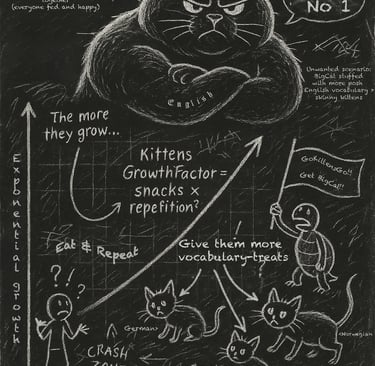 together
(everyone fed and happy)
No 1
English
Unwanted scenario:
BigCat stuffed
with more posh
English vocabulary +
skinny kittens
The more
they grow...
Kittens
GrowthFactor =
snacks ×
repetition?
GoKittensGo!!
Get BigCat!!
Eat & Repeat
Give them more
vocabulary-treats
Exponential growth
?!?
German
Norwegian
CRASH